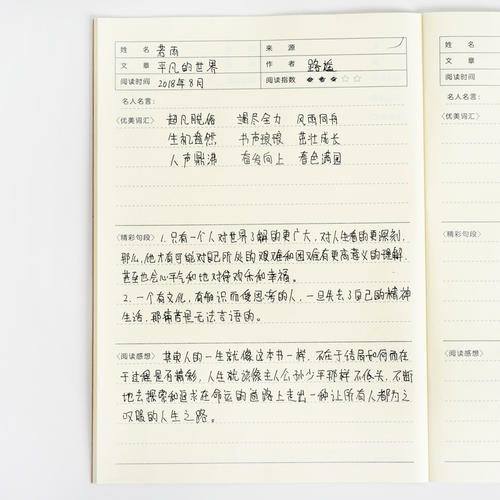 姓 名 若雨 来 源
文 章 平凡的世界 作 者 路遥
阅读时间 2018年8月 阅读指数
名人名言:
〈优美词汇〉 超凡脱俗 竭尽全力 风雨同舟
生机盎然 书声琅琅 茁壮成长
人声鼎沸 奋发向上 春色满园
〈精彩句段〉 1.只有一个人对世界了解的更广大,对人生看的更深刻,
那么,他才有可能对自己所处的艰难和困难有更高意义的理解,
甚至也会心平气和地对待欢乐和幸福。
2.一个有文化,有知识而像思考的人,一旦失去了自己的精神
生活,那痛苦是无法言语的。
〈阅读感想〉 其实人的一生就像这本书一样,不在于结局如何而在
于过程是否精彩,人生就该像主人公孙少平那样不低头,不断
地去探索和追求在命运的道路上走出一种让所有人都为之
叹服的人生之路。
姓
文
阅读
名人
〈优美
〈精彩
〈阅读